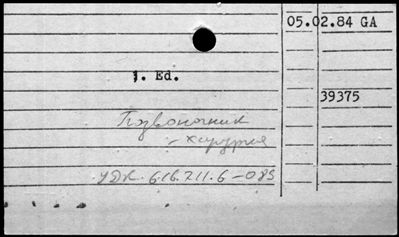 05.02.84 GA
1. Ed.
39375
Позвоночник
- хирургия
УДК 616.711.6-089